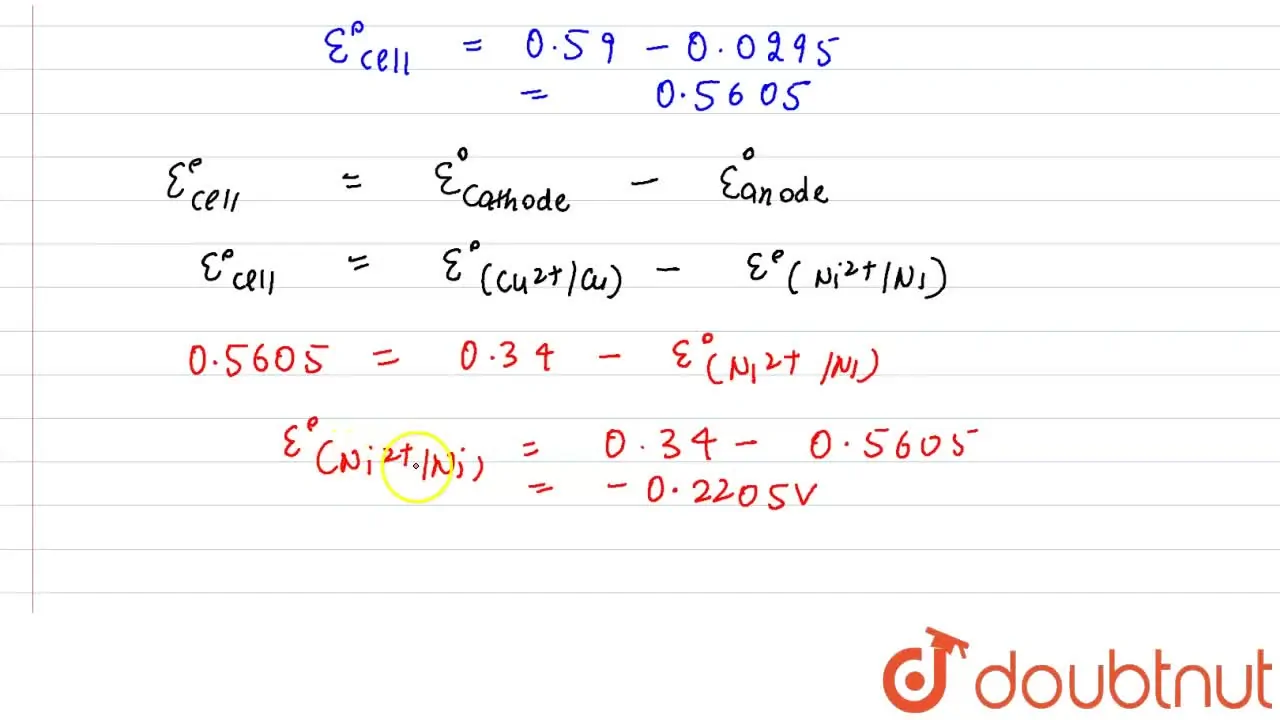 Ɛ°cell = 0.59 - 0.0295
= 0.5605
Ɛ°cell = Ɛ°cathode - Ɛ°anode
Ɛ°cell = Ɛ°(Cu2+/Cu) - Ɛ°(Ni2+/Ni)
0.5605 = 0.34 - Ɛ°(Ni2+/Ni)
Ɛ°(Ni2+/Ni) = 0.34 - 0.5605
= -0.2205V
doubtnut